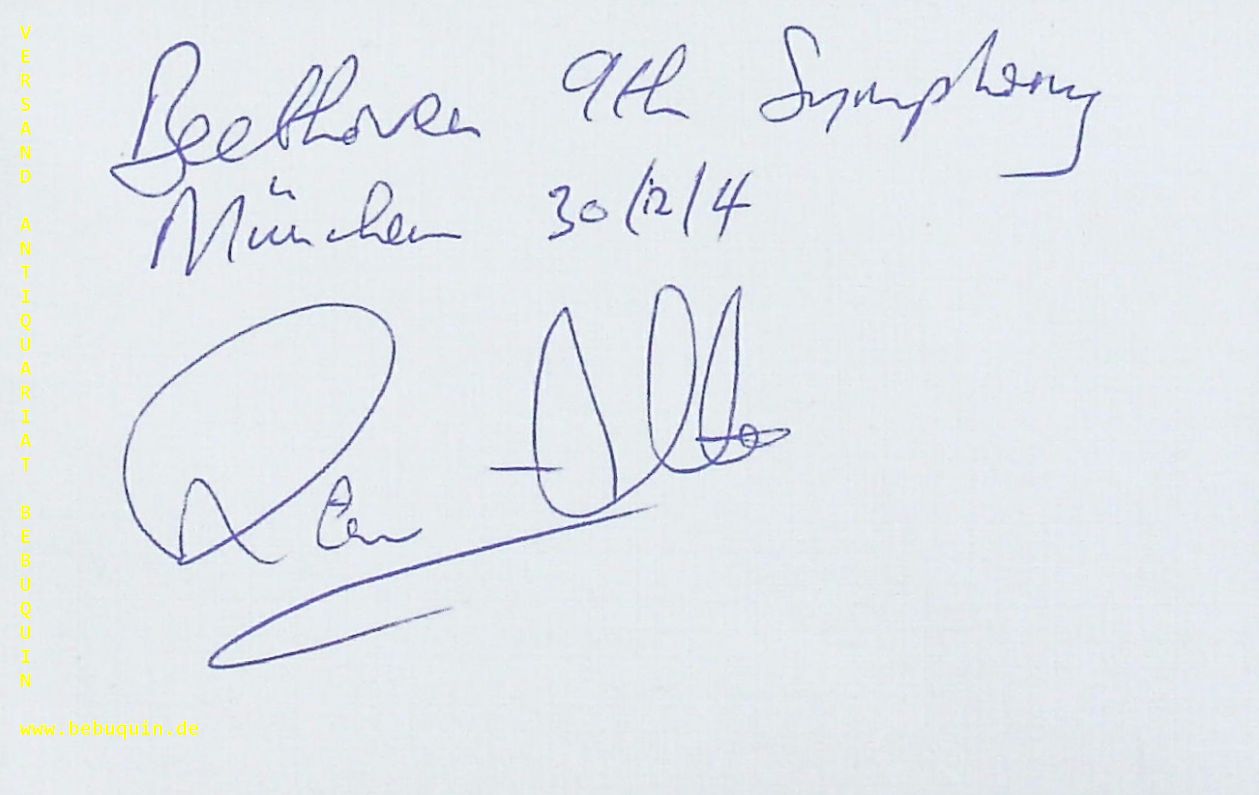 Beethoven 9th Symphony
München 30/12/4
VERSAND ANTIQUARIAT BEBUQUIN
www.bebuquin.de